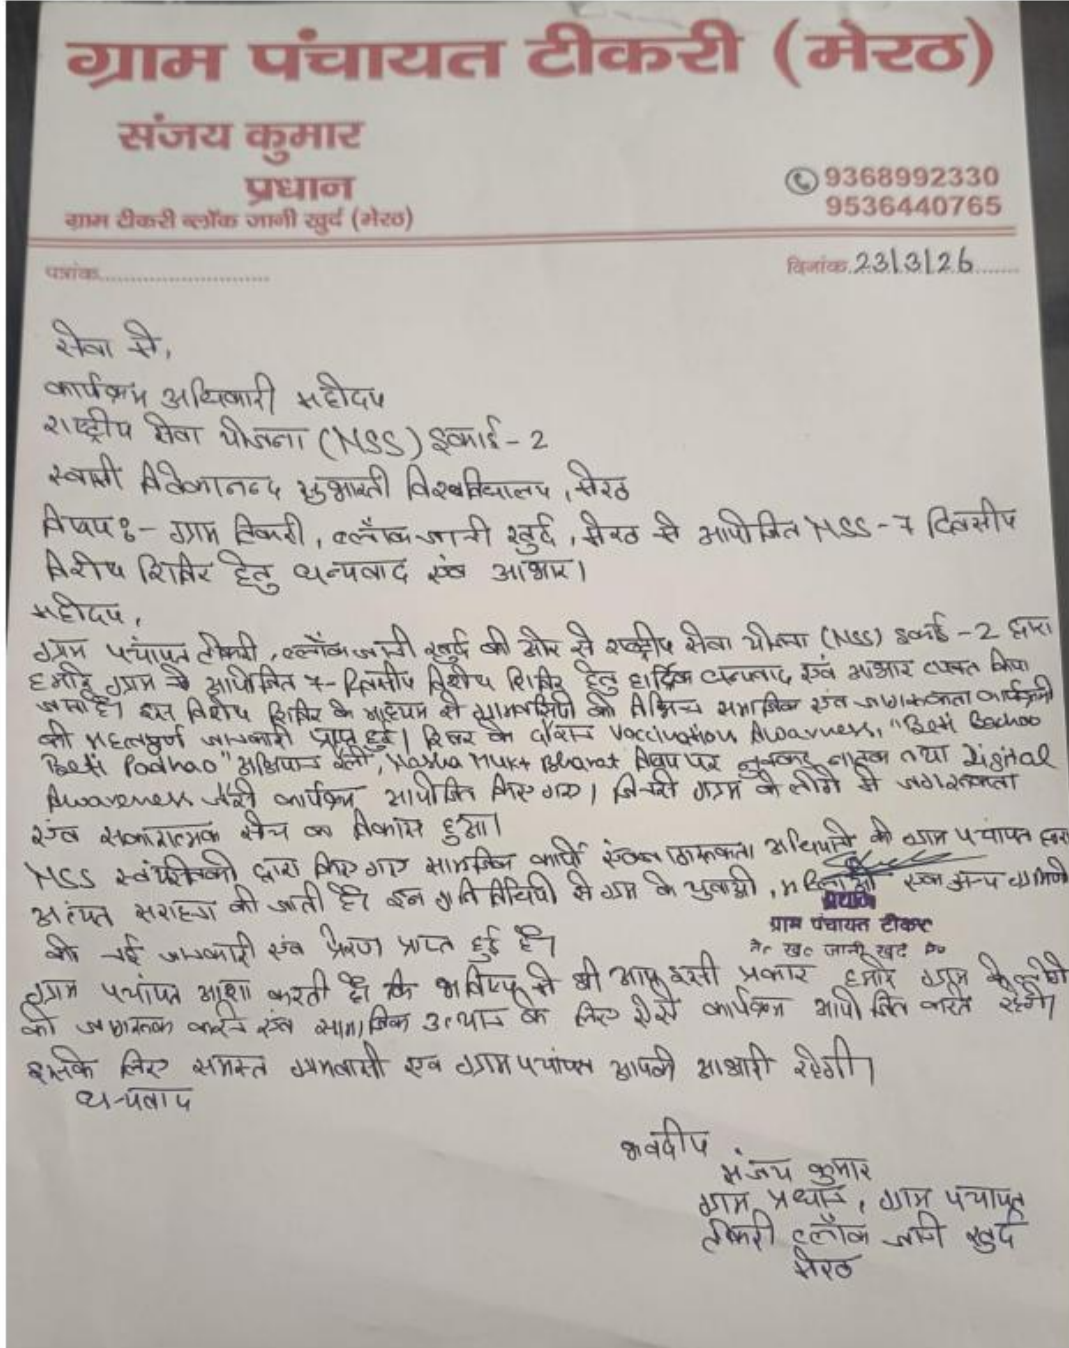 ग्राम पंचायत टीकरी (मेरठ)
संजय कुमार
प्रधान
ग्राम टीकरी ब्लॉक जानी खुर्द (मेरठ)
9368992330
9536440765
पत्रांक..............................
दिनांक.23/3/26.......
सेवा में,
कार्यक्रम अधिकारी महोदय
राष्ट्रीय सेवा योजना (NSS) इकाई - 2
स्वामी विवेकानन्द सुभारती विश्वविद्यालय, मेरठ
विषय :- ग्राम टिकरी, ब्लॉक जानी खुर्द, मेरठ में आयोजित NSS - 7 दिवसीय
विशेष शिविर हेतु धन्यवाद एंव आभार।
महोदय,
ग्राम पंचायत टीकरी, ब्लॉक जानी खुर्द की ओर से राष्ट्रीय सेवा योजना (NSS) इकाई - 2 द्वारा
हमारे ग्राम में आयोजित 7-दिवसीय विशेष शिविर हेतु हार्दिक धन्यवाद एवं आभार व्यक्त किया
जाता है। इस विशेष शिविर के माध्यम से ग्रामवासियों को विभिन्न समाजिक एंव जागरूकता कार्यक्रमों
की महत्वपूर्ण जानकारी प्राप्त हुई। शिविर के दौरान Vaccination Awarness, "Beti Bachao
Beti Padhao" अभियान रैली, Nasha Mukt Bharat विषय पर नुक्कड़ नाटक तथा Digital
Awareness जैसे कार्यक्रम आयोजित किए गए। जिससे ग्राम के लोगों में जागरूकता
एंव सकारात्मक सोच का विकास हुआ।
NSS स्वंयसेवकों द्वारा किए गए सामाजिक कार्यों एंव जागरूकता अभियानों की ग्राम पंचायत द्वारा
अत्यंत सराहना की जाती है। इन गतिविधियों से ग्राम के युवाओं, महिलाओं एंव अन्य ग्रामीणों
प्रधान
ग्राम पंचायत टीकरी
को नई जानकारी एंव प्रेरणा प्राप्त हुई है।
वि० ख० जानी खुर्द मे०
ग्राम पंचायत आशा करती है कि भविष्य में भी आप इसी प्रकार हमारे ग्राम के लोगो
को जागरूक करने एंव सामाजिक उत्थान के लिए ऐसे कार्यक्रम आयोजित करते रहेंगे।
इसके लिए समस्त ग्रामवासी एवं ग्राम पंचायत आपकी आभारी रहेगी।
धन्यवाद
भवदीय
संजय कुमार
ग्राम प्रधान, ग्राम पंचायत
टीकरी ब्लॉक जानी खुर्द
मेरठ